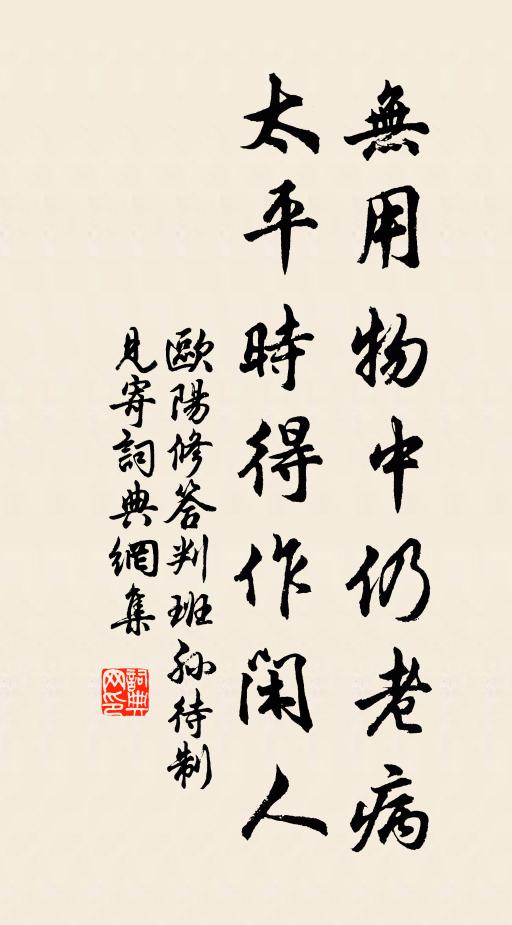 無用物中仍老病
太平時得作閑人
歐陽修答判班孙待制
見寄詞典網集
詞典
网印